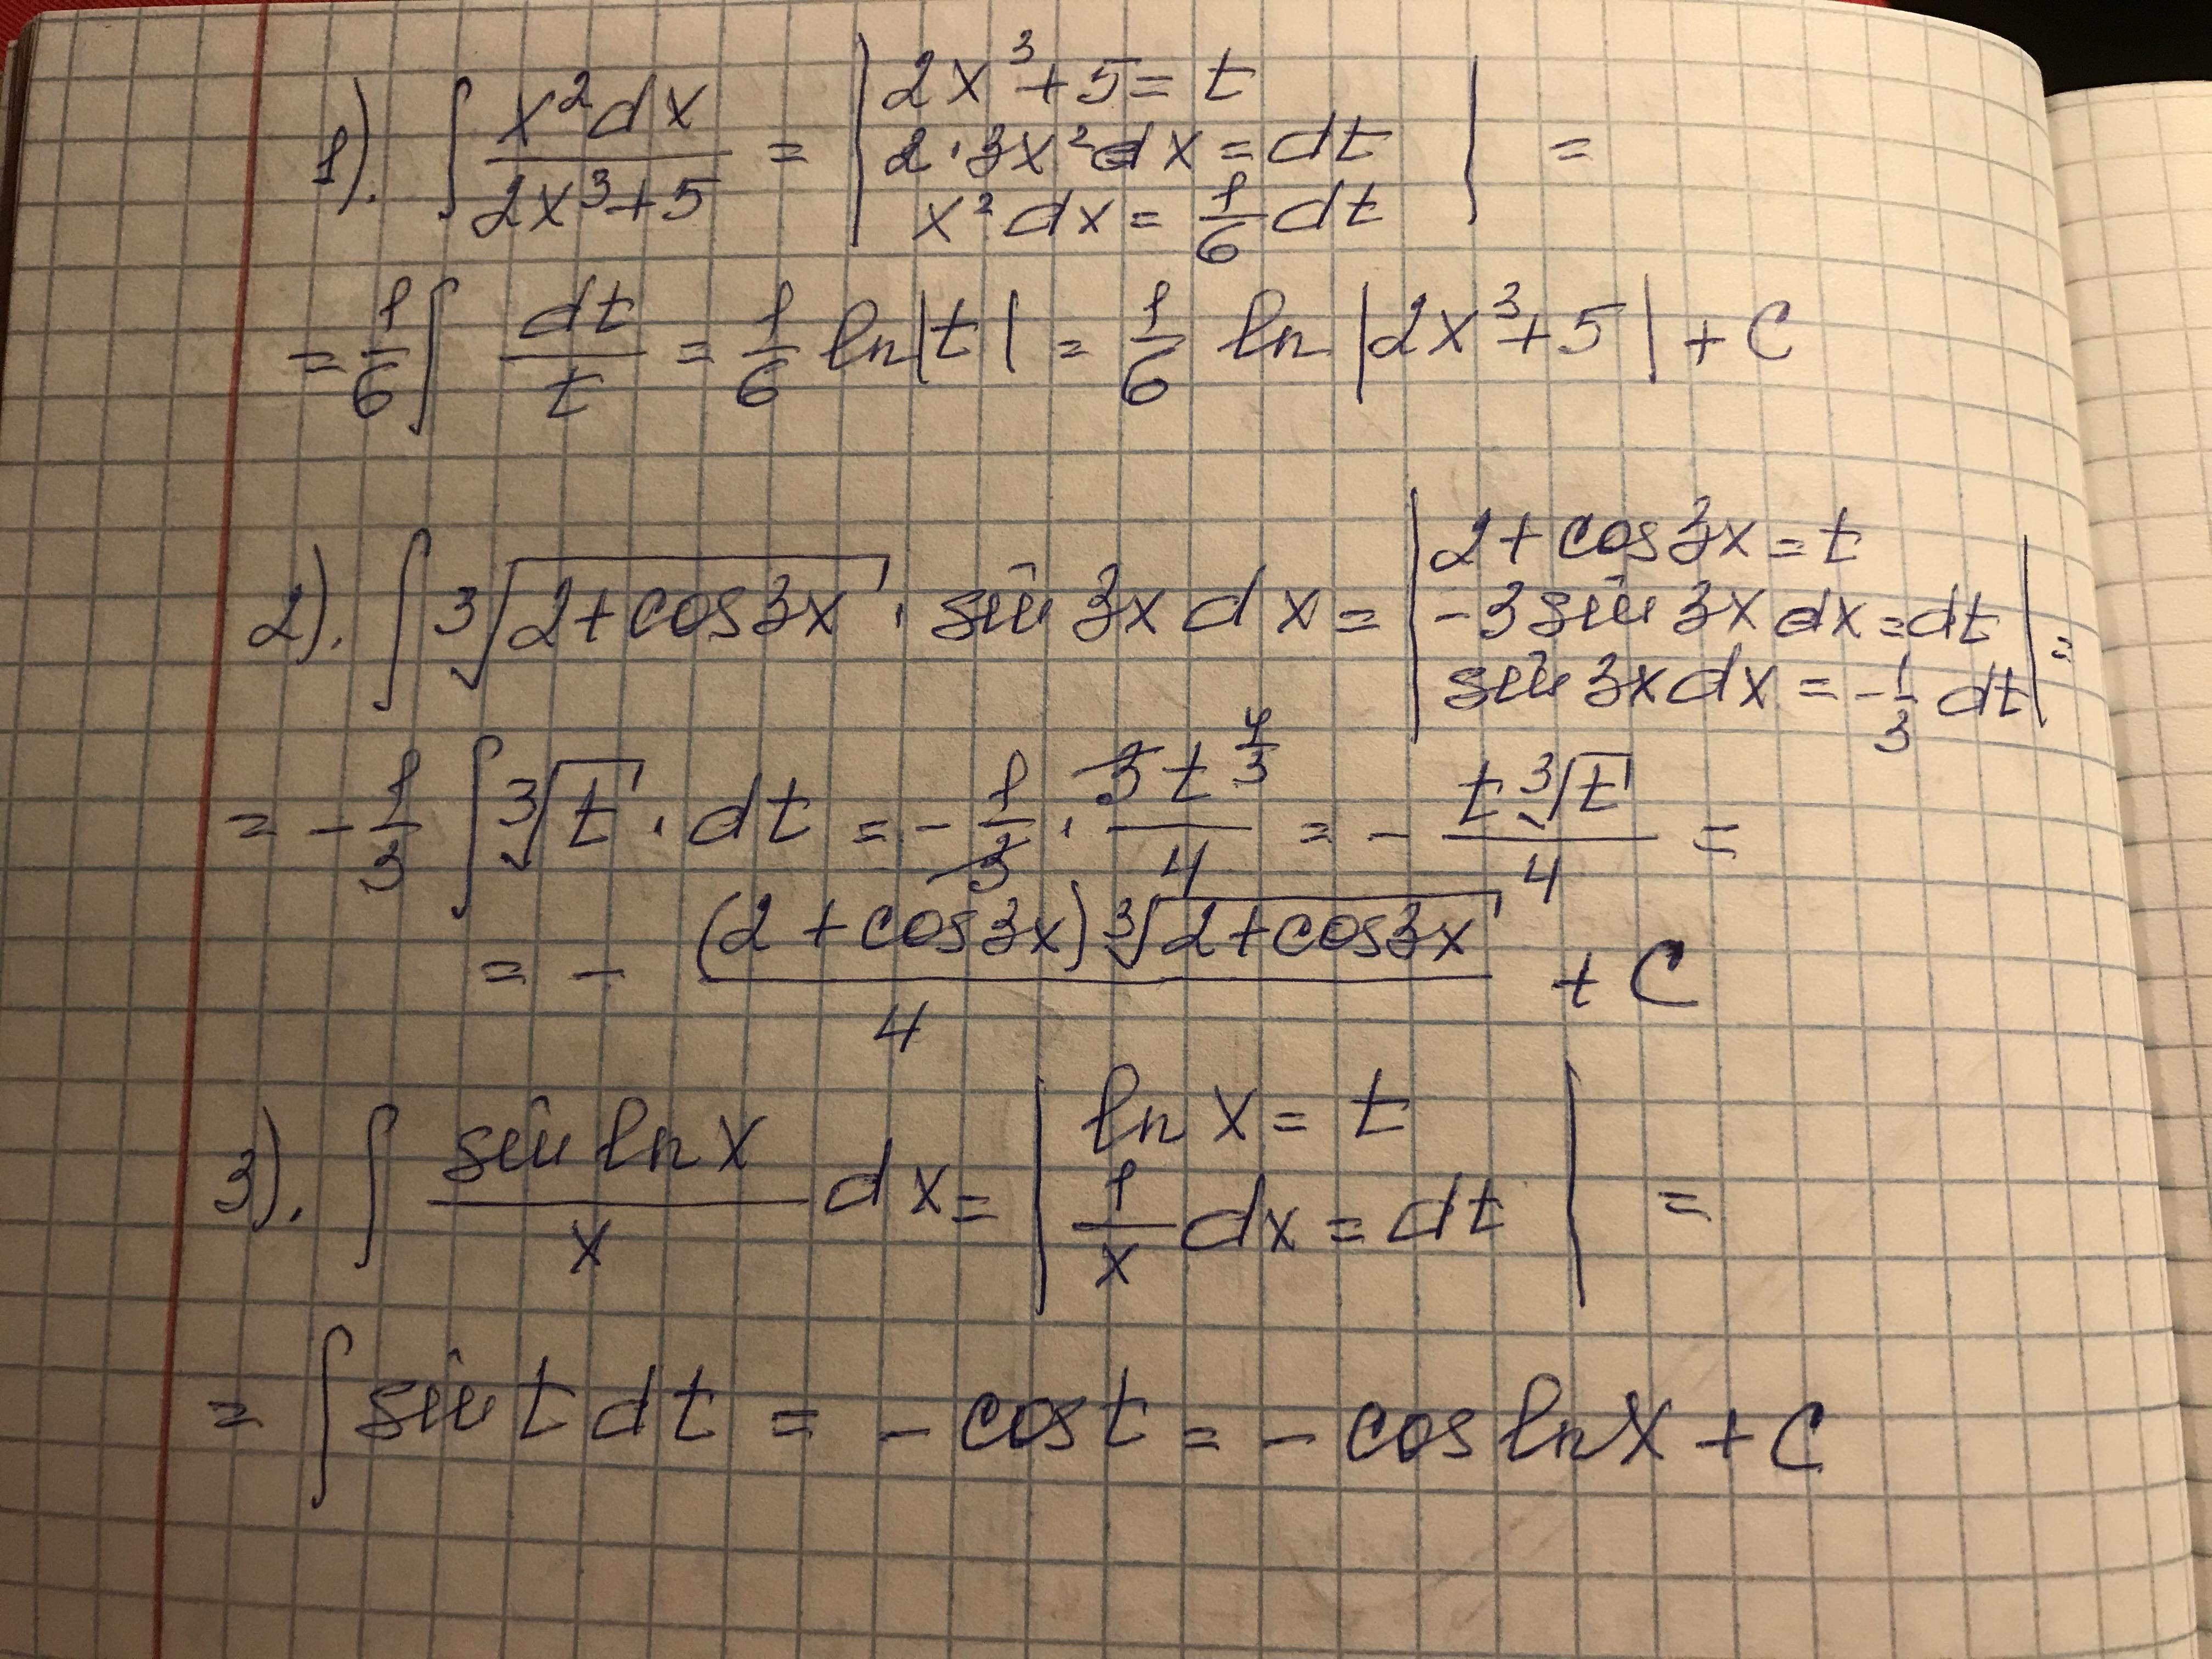 1). ∫ x²dx / 2x³+5 = | 2x³+5 = t
2·3x²dx = dt
x²dx = 1/6 dt | =
= 1/6 ∫ dt/t = 1/6 ln|t| = 1/6 ln|2x³+5| + C
2). ∫ ³√(2+cos3x) · sin 3x dx = | 2+cos3x = t
-3 sin 3x dx = dt
sin 3x dx = -1/3 dt | =
= -1/3 ∫ ³√t · dt = -1/3 · 3t^(4/3) / 4 = - t ³√t / 4 =
= - (2+cos3x) ³√(2+cos3x) / 4 + C
3). ∫ sin ln x / x dx = | ln x = t
1/x dx = dt | =
= ∫ sin t dt = - cos t = - cos ln x + C